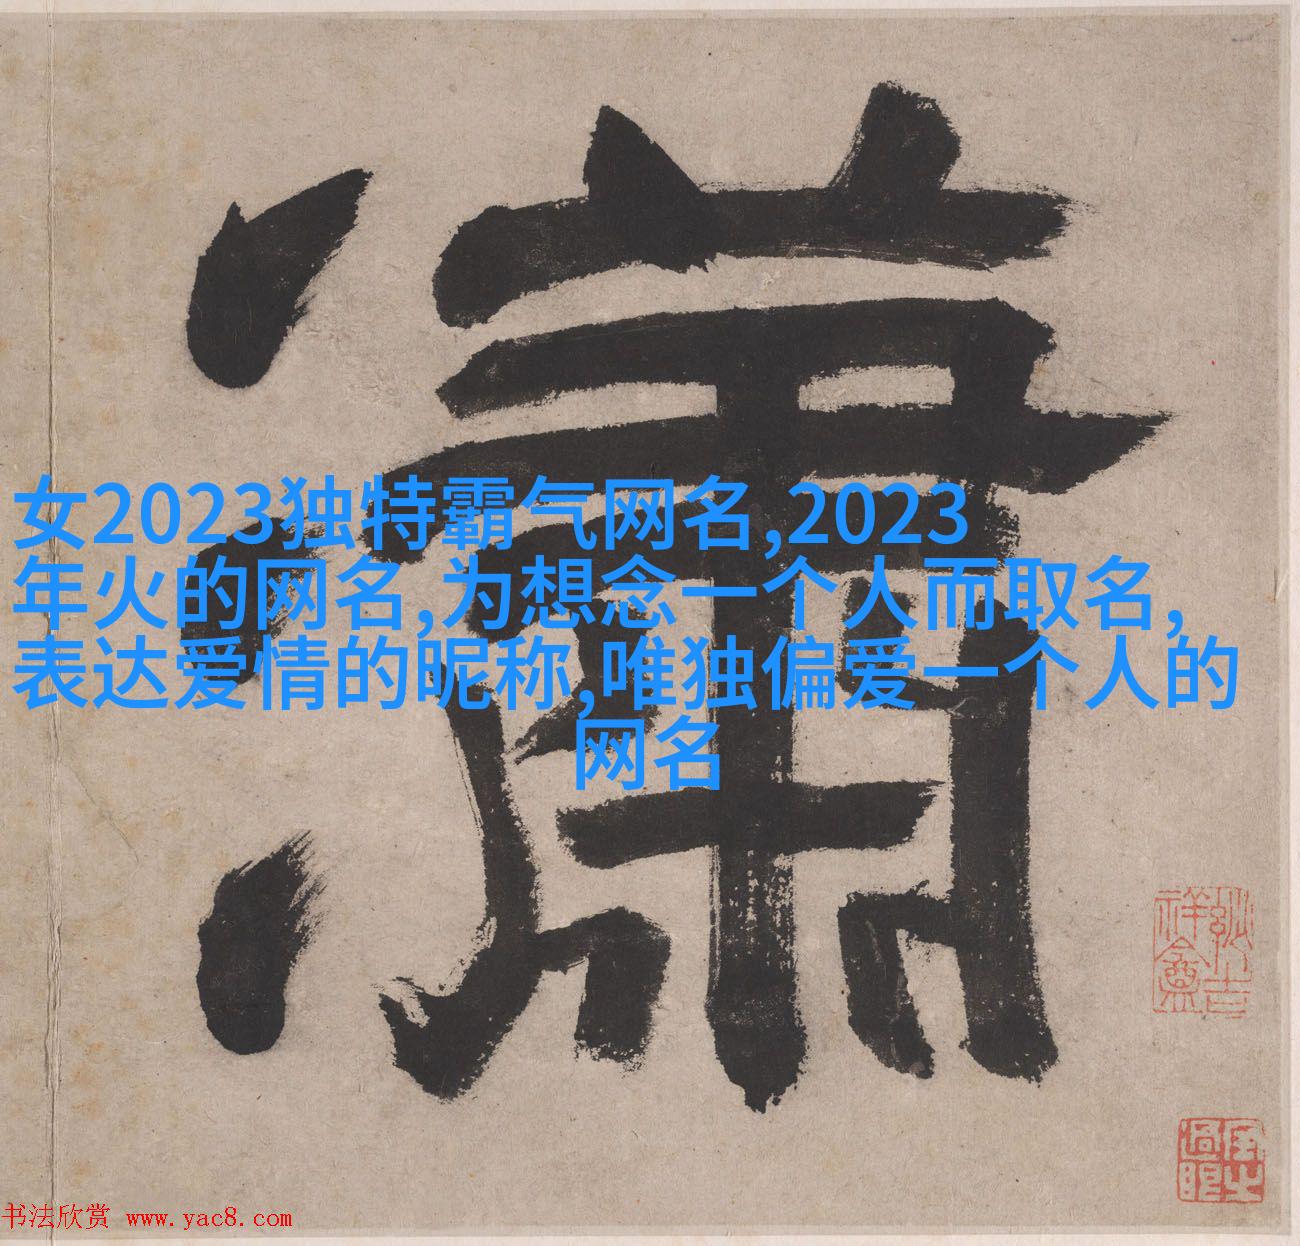 瀟
女2023独特霸气网名,2023
年火的网名,为想念一个人而取名,
表达爱情的昵称,唯独偏爱一个人的
网名
书法欣赏 www.yac8.com